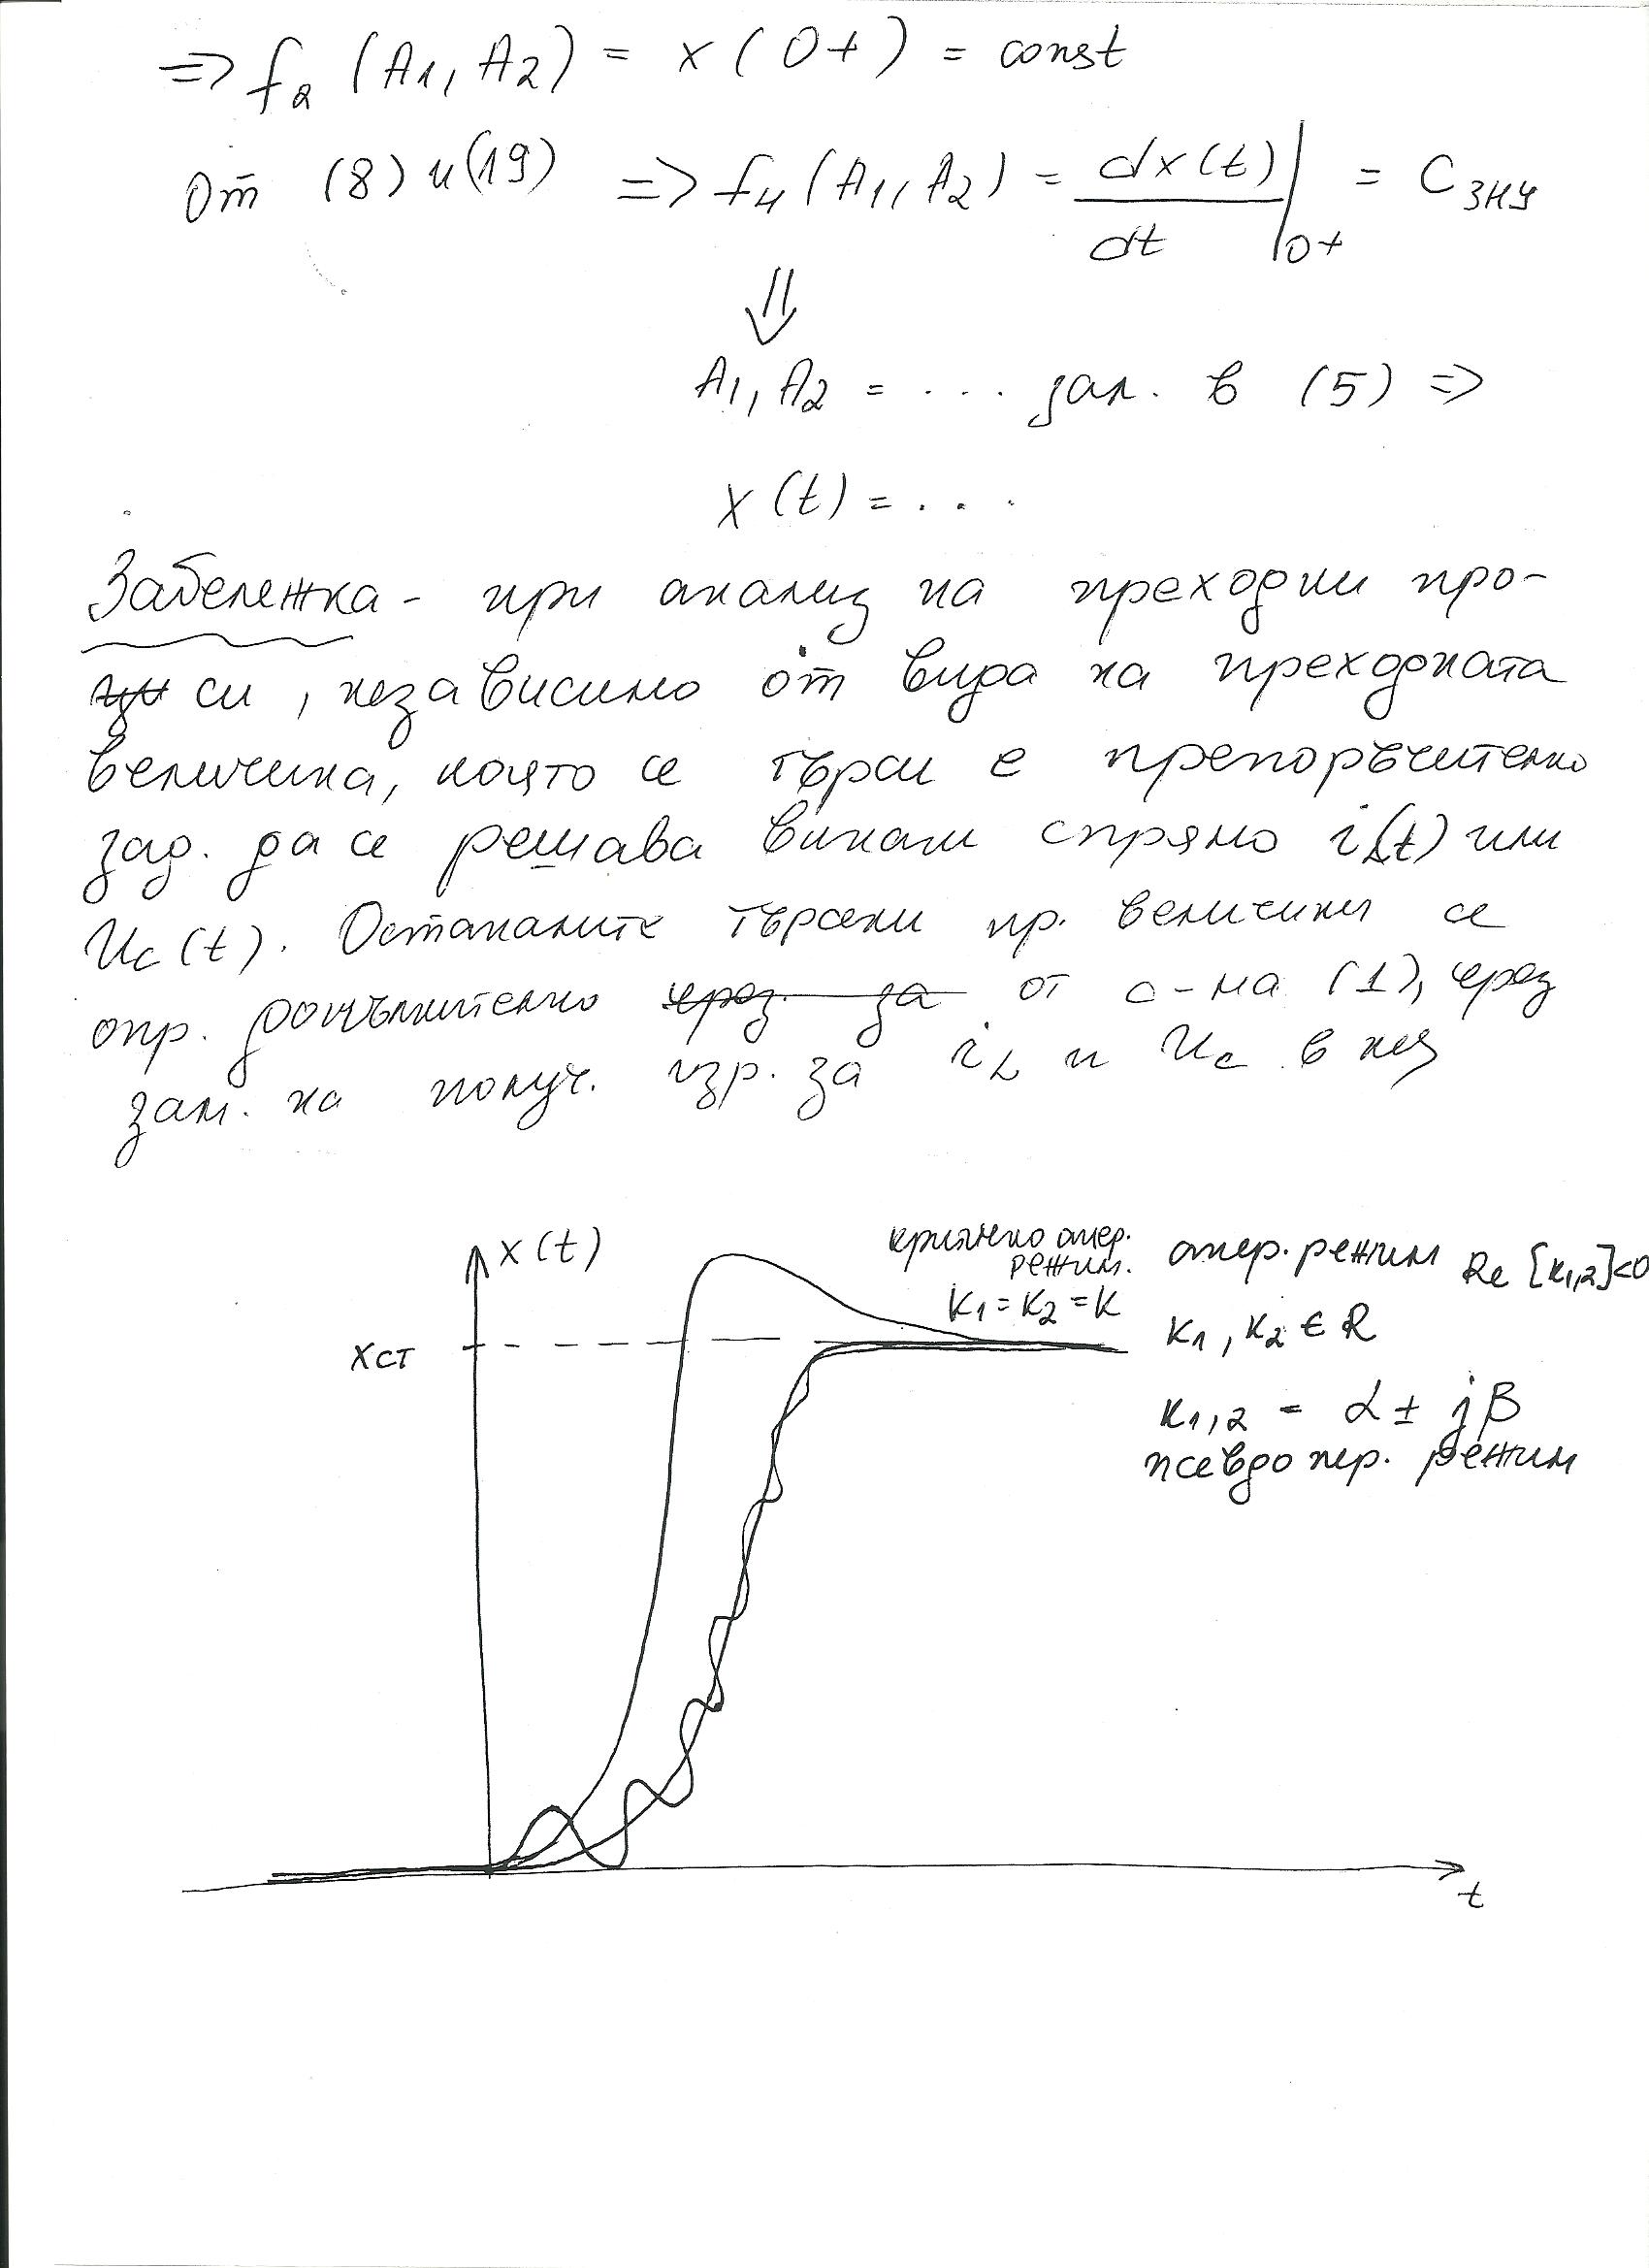 => f₂ (A1, A2) = x ( 0+ ) = const
От (8) и (19) => f4 (A1, A2) = dx(t)/dt |0+ = C ЗНУ
⇓
A1, A2 = . . . зам. в (5) =>
x (t) = . . .
Забележка - при анализ на преходни про-
си, независимо от вида на преходната
величина, която се търси е препоръчително
зад. да се решава винаги спрямо iL(t) или
Uc (t). Останалите търсени пр. величини се
опр. допълнително през за от с-ма (1), чрез
зам. на получ. изр. за iL и Uc в нея
x (t)
критично апер.
режим.
K1 = K2 = K
апер. режим Re [K1,2]<0
K1, K2 ∈ R
xст
K1,2 = α ± jβ
псевдо пер. режим
t